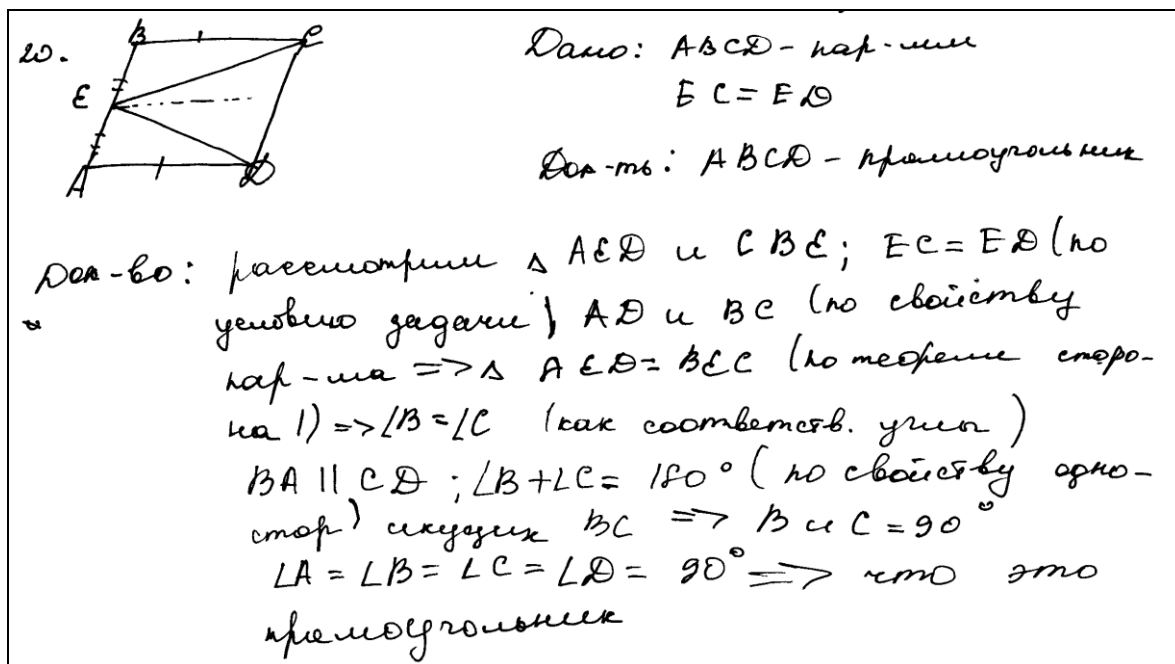 20.
B
C
E
A
D
Дано: ABCD - пар-мм
EC = ED
Док-ть: ABCD - прямоугольник
Док-во: рассмотрим △ AED и CBE; EC = ED (по
условию задачи) AD и BC (по свойству
пар-ма => △ AED = BEC (по теореме сторо-
на 1) => ∠B = ∠C (как соответств. углы)
BA || CD ; ∠B + ∠C = 180° (по свойству одно-
стор) секущих BC => B и C = 90°
∠A = ∠B = ∠C = ∠D = 90° => что это
прямоугольник